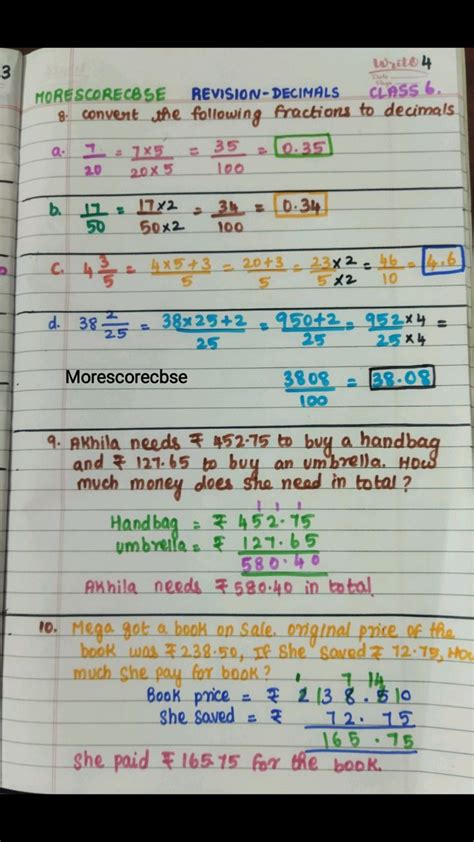 3
Write 4
MORESCORECBSE REVISION-DECIMALS CLASS 6.
8. convert the following fractions to decimals
a. 7/20 = 7×5/20×5 = 35/100 = 0.35
b. 17/50 = 17×2/50×2 = 34/100 = 0.34
c. 4 3/5 = 4×5+3/5 = 20+3/5 = 23×2/5×2 = 46/10 = 4.6
d. 38 2/25 = 38×25+2/25 = 950+2/25 = 952×4/25×4 =
Morescorecbse 3808/100 = 38.08
9. Akhila needs ₹ 452.75 to buy a handbag
and ₹ 127.65 to buy an umbrella. How
much money does she need in total?
1 1 1
Handbag = ₹ 452.75
umbrella = ₹ 127.65
580.40
Akhila needs ₹580.40 in total
10. Mega got a book on sale. original price of the
book was ₹238.50, If she saved ₹ 72.75, How
much she pay for book?
1 7 14
Book price = ₹ 2138.510
She saved = ₹ 72.75
165.75
She paid ₹165.75 for the book.